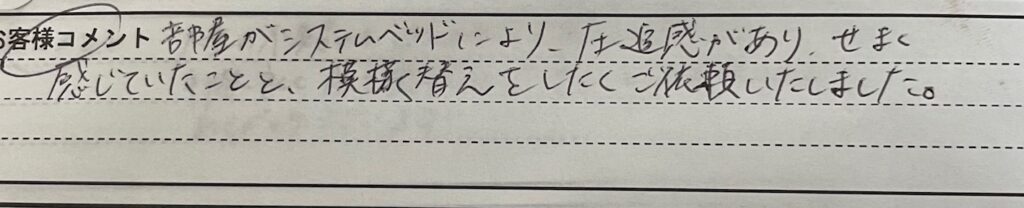 お客様コメント 部屋がシステムベッドにより、圧迫感があり、せまく
感じていたことと、模様替えをしたくご依頼いたしました。